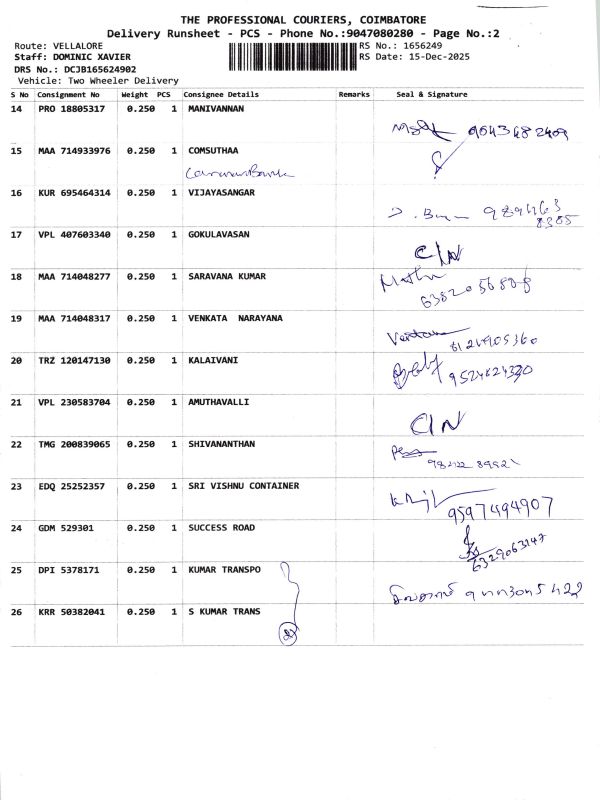 THE PROFESSIONAL COURIERS, COIMBATORE
Delivery Runsheet - PCS - Phone No.:9047080280 - Page No.:2
Route: VELLALORE RS No.: 1656249
Staff: DOMINIC XAVIER RS Date: 15-Dec-2025
DRS No.: DCJB165624902
Vehicle: Two Wheeler Delivery
S No Consignment No Weight PCS Consignee Details Remarks Seal & Signature
14 PRO 18805317 0.250 1 MANIVANNAN
15 MAA 714933976 0.250 1 COMSUTHAA
16 KUR 695464314 0.250 1 VIJAYASANGAR
17 VPL 407603340 0.250 1 GOKULAVASAN
C/N
18 MAA 714048277 0.250 1 SARAVANA KUMAR
19 MAA 714048317 0.250 1 VENKATA NARAYANA
20 TRZ 120147130 0.250 1 KALAIVANI
21 VPL 230583704 0.250 1 AMUTHAVALLI
C/N
22 TMG 200839065 0.250 1 SHIVANANTHAN
23 EDQ 25252357 0.250 1 SRI VISHNU CONTAINER
9597494907
24 GDM 529301 0.250 1 SUCCESS ROAD
6329063147
25 DPI 5378171 0.250 1 KUMAR TRANSPO
26 KRR 50382041 0.250 1 S KUMAR TRANS